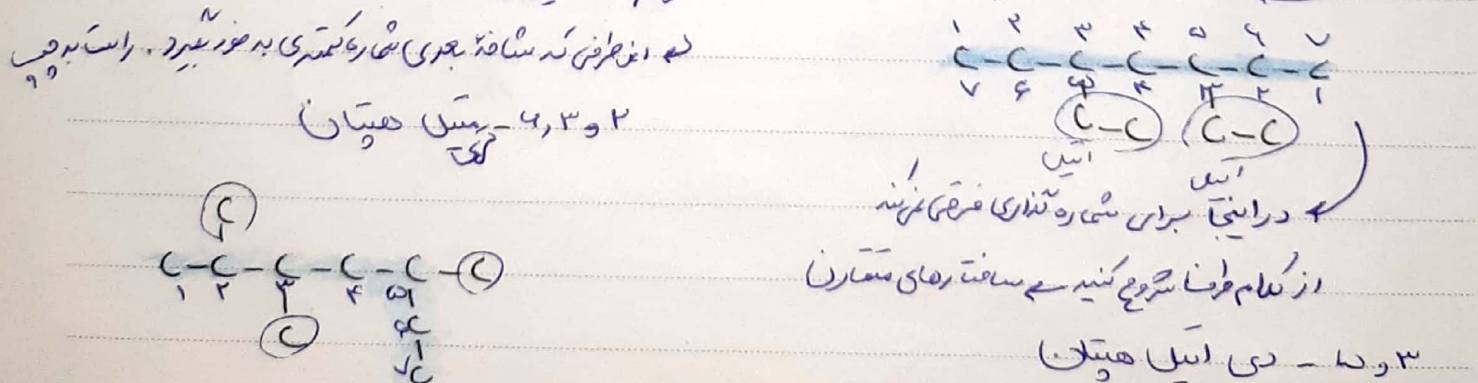 ۱ ۲ ۳ ۴ ۵ ۶ ۷
C-C-C-C-C-C-C
۷ ۶ ۵ ۴ ۳ ۲ ۱
C-C C-C
اتیل اتیل
در اینجا برای شماره گذاری فرقی نمی کند
از کدام طرف شروع کنید ← ساختارهای متقارن
۳ و ۵ - دی اتیل هپتان
از طرفی که شاخهٔ بعدی شماره کمتری به خود بگیرد. راست به چپ
۲ و ۳ و ۶ - تری متیل هپتان
C
C-C-C-C-C-C
۱ ۲ ۳ ۴ ۵
C ۶C
۷C